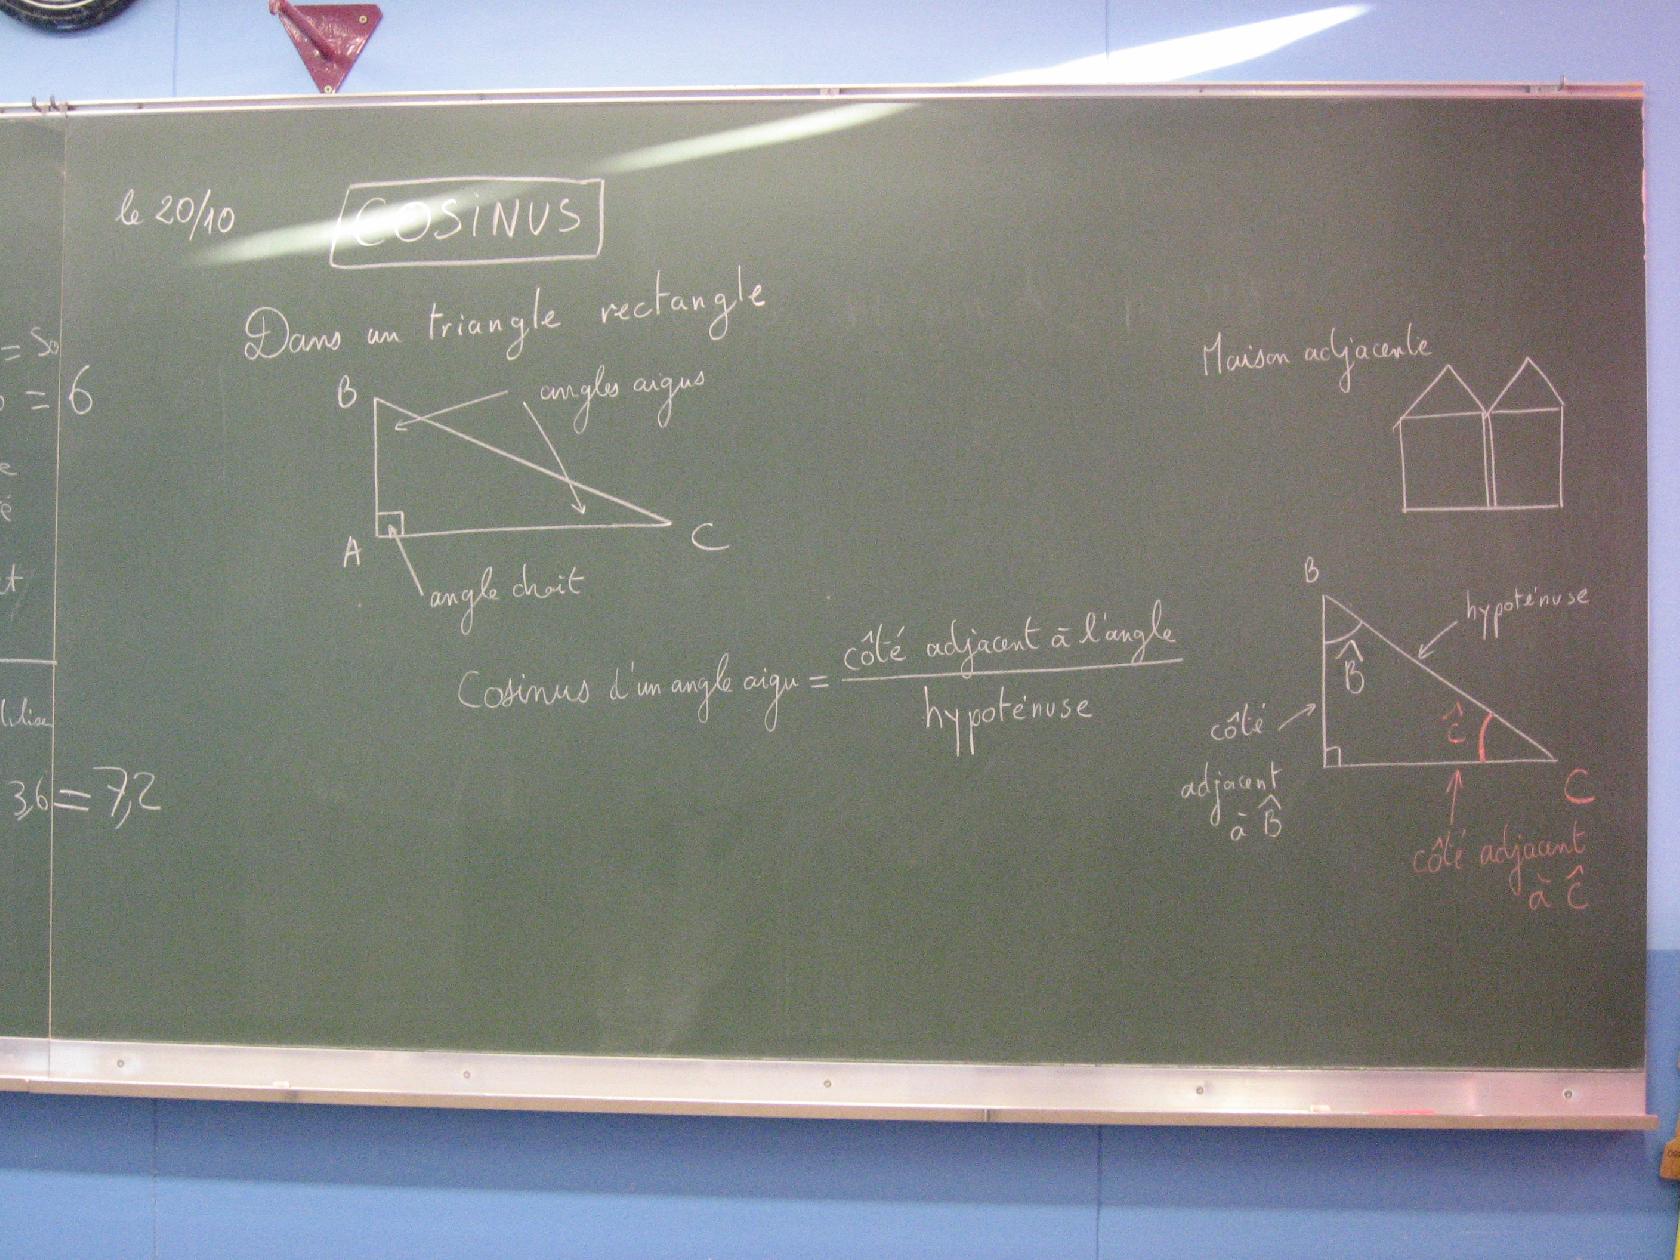 le 20/10
COSINUS
Dans un triangle rectangle
B
angles aigus
A
C
angle droit
Cosinus d'un angle aigu = côté adjacent à l'angle
hypoténuse
Maison adjacente
B
hypoténuse
B̂
côté
adjacent
à B̂
Ĉ
C
côté adjacent
à Ĉ
= 6
3,6 = 7,2